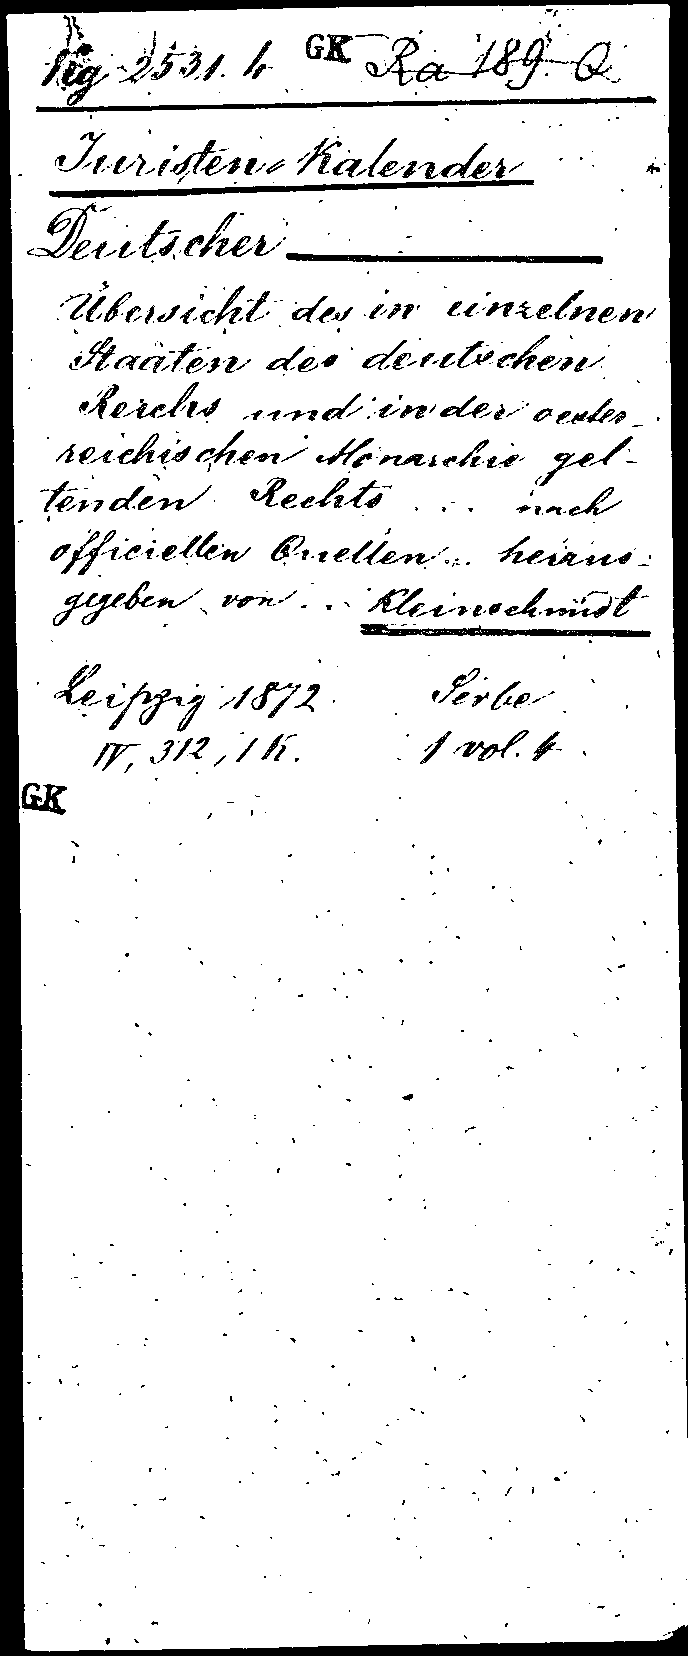 Kg 2531. 4 GK Ra 189 Q
Juristen-Kalender
Deutscher
Übersicht des in einzelnen
Staaten des deutschen
Reichs und in der oester-
reichischen Monarchie gel-
tenden Rechts ... nach
officiellen Quellen .. heraus-
gegeben von ... Kleinschmidt
Leipzig 1872 Serbe
IV, 312, 1 K. 1 vol. 4
GK